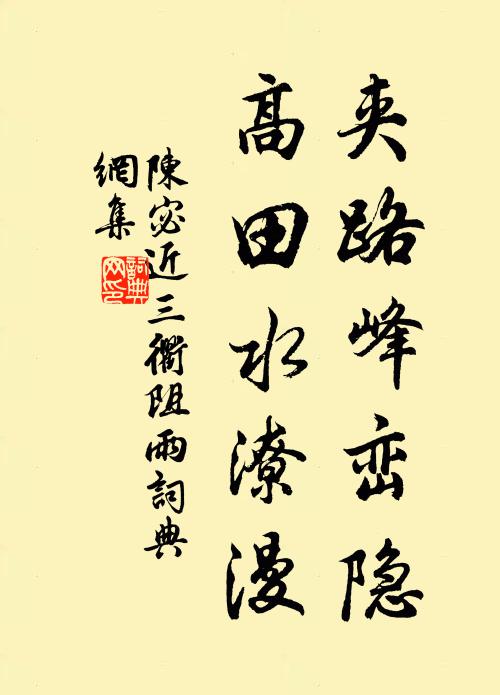 夹路峰峦隐
高田水潦漫
陳宓近三衢阻雨詞典
網集
詞典
网印